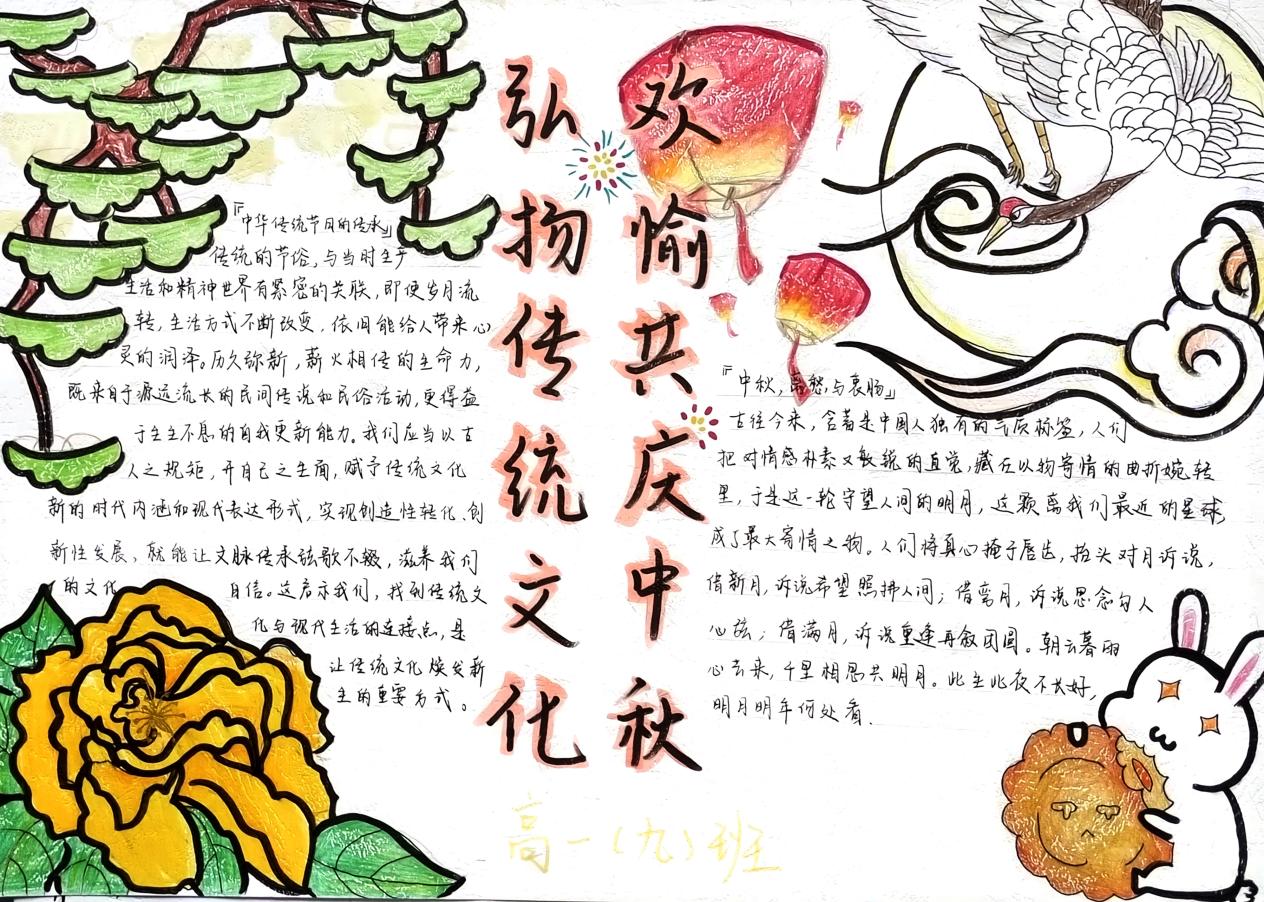 弘扬传统文化
欢愉共庆中秋
『中华传统节日的传承』
传统的节俗，与当时生产
生活和精神世界有紧密的关联，即便岁月流
转，生活方式不断改变，依旧能给人带来心
灵的润泽。历久弥新，薪火相传的生命力，
既来自于源远流长的民间传说和民俗活动，更得益
于生生不息的自我更新能力。我们应当以古
人之规矩，开自己之生面，赋予传统文化
新的时代内涵和现代表达形式，实现创造性转化、创
新性发展，就能让文脉传承弦歌不辍，滋养我们
的文化自信。这启示我们，找到传统文
化与现代生活的连接点，是
让传统文化焕发新
生的重要方式。
『中秋，离愁与衷肠』
古往今来，含蓄是中国人独有的气质标签，人们
把对情感朴素又敏锐的直觉，藏在以物寄情的曲折婉转
里，于是这一轮守望人间的明月，这颗离我们最近的星球
成了最大寄情之物。人们将真心掩于唇齿，抬头对月诉说，
借新月，诉说希望照拂人间；借弯月，诉说思念勾人
心弦；借满月，诉说重逢再叙团圆。朝云暮雨
心去来，千里相思共明月。此生此夜不长好，
明月明年何处看.
高一（九）班